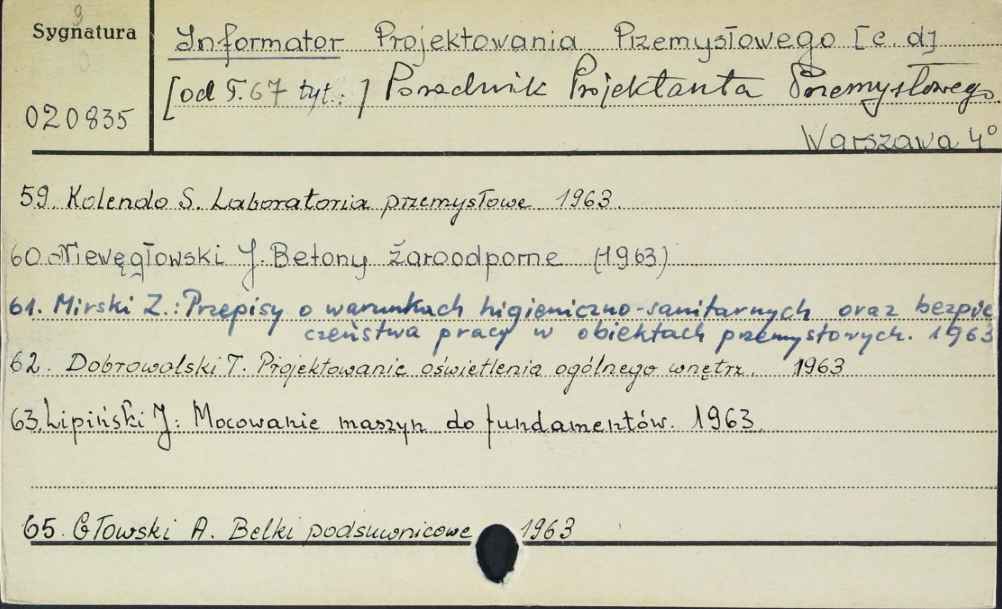 Sygnatura
020835
Informator Projektowania Przemysłowego [c. d]
[od T. 67 tyt.:] Poradnik Projektanta Przemysłowego
Warszawa 4°
59. Kolendo S. Laboratoria przemysłowe 1963.
60. Niewęgłowski J. Betony żaroodporne (1963)
61. Mirski Z.: Przepisy o warunkach higieniczno-sanitarnych oraz bezpie
czeństwa pracy w obiektach przemysłowych. 1963
62. Dobrowolski T. Projektowanie oświetlenia ogólnego wnętrz. 1963
63. Lipiński J: Mocowanie maszyn do fundamentów. 1963.
65. Głowski A. Belki podsuwnicowe 1963